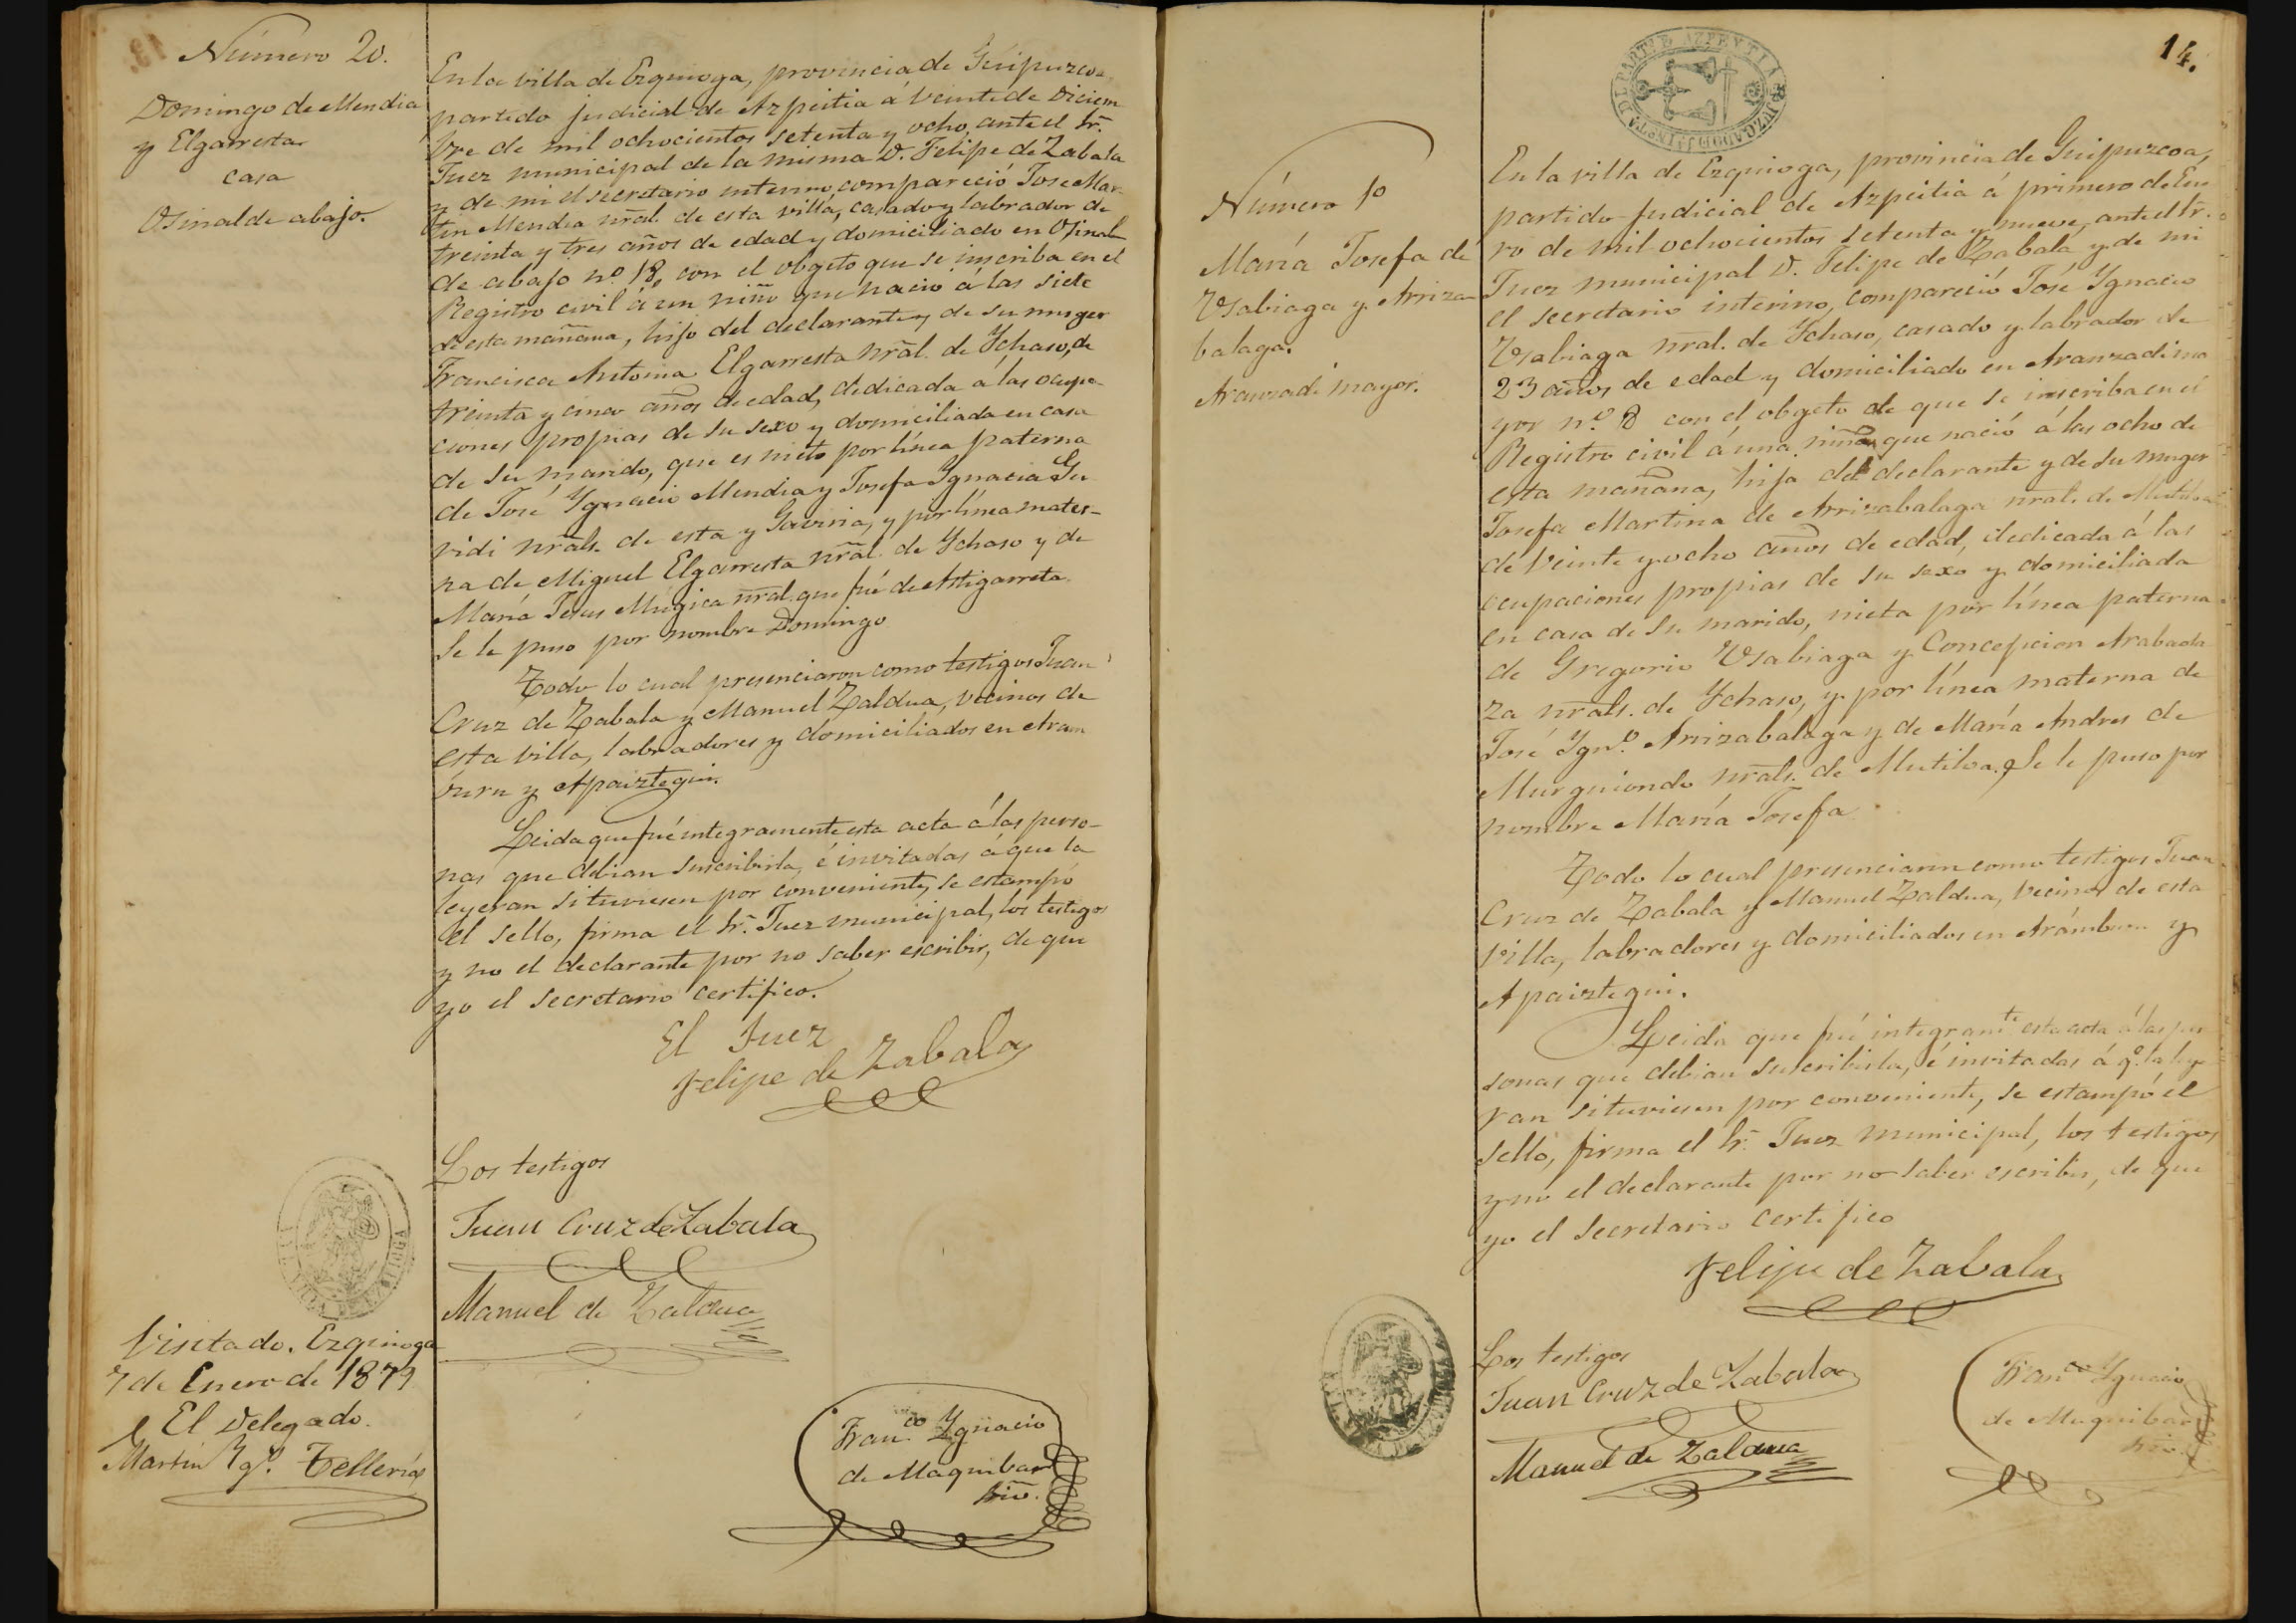 Número 20.
Domingo de Mendia
y Elgarresta
casa
Osinalde abajo.
En la villa de Ezquioga, provincia de Guipuzcoa,
partido judicial de Azpeitia á veinte de Diciem
bre de mil ochocientos setenta y ocho, ante el Sr.
Juez municipal de la misma D. Felipe de Zabala
y de mi el secretario interino, compareció Jose Mar
tin Mendia nral. de esta villa, casado y labrador de
treinta y tres años de edad y domiciliado en Osinal
de abajo nº. 18, con el obgeto que se inscriba en el
Registro civil á un niño que nació á las siete
de esta mañana, hijo del declarante y de su muger
Francisca Antonia Elgarresta nral. de Ychaso, de
treinta y cinco años de edad, dedicada á las ocupa-
ciones propias de su sexo y domiciliada en casa
de su marido, que es nieto por línea paterna
de José Ygnacio Mendia y Josefa Ygnacia Gu
ridi nrals. de esta y Gaviria, y por línea mater-
na de Miguel Elgarresta nral. de Ychaso y de
María Jesus Múgica nral. que fué de Astigarreta.
Se le puso por nombre Domingo
Todo lo cual presenciaron como testigos Juan
Cruz de Zabala y Manuel Zaldua, vecinos de
esta villa, labradores y domiciliados en Aram
buru y Apaiztegui.
Leida que fué integramente esta acta á las perso-
nas que debian suscribirla, é invitadas á que la
leyeran si tuviesen por conveniente, se estampó
el sello, firma el Sr. Juez municipal, los testigos
y no el declarante por no saber escribir, de que
yo el secretario certifico.
El Juez
Felipe de Zabala
Los testigos
Juan Cruz de Zabala
Manuel de Zaldua
Visitado. Ezquioga
7 de Enero de 1879
El Delegado.
Martin Ygº. Tellería
Franco. Ygnacio
de Maquibar
Srio.
14.
JUZGADO DE 1ª INSTA. DEL PART. DE AZPEITIA
Número 1º
María Josefa de
Usabiaga y Arriza
balaga.
Aranzadi mayor.
En la villa de Ezquioga, provincia de Guipuzcoa,
partido judicial de Azpeitia á primero de Ene
ro de mil ochocientos setenta y nueve, ante el Sr.
Juez municipal D. Felipe de Zabala y de mi
el secretario interino, compareció José Ygnacio
Usabiaga nral. de Ychaso, casado y labrador de
23 años de edad y domiciliado en Aranzadi ma
yor nº. 8 con el obgeto de que se inscriba en el
Registro civil á una niña que nació á las ocho de
esta mañana, hija del declarante y de su muger
Josefa Martina de Arrizabalaga nral. de Mutiloa
de veinte y ocho años de edad, dedicada á las
ocupaciones propias de su sexo y domiciliada
en casa de su marido, nieta por línea paterna
de Gregorio Usabiaga y Concepcion Arabaola
za nrals. de Ychaso, y por línea materna de
José Ygnº. Arrizabalaga y de María Andres de
Murguiondo nrals. de Mutiloa. Se le puso por
nombre María Josefa
Todo lo cual presenciaron como testigos Juan
Cruz de Zabala y Manuel Zaldua, vecinos de esta
villa, labradores y domiciliados en Arámburu y
Apaiztegui.
Leida que fué integramte. esta acta á las per
sonas que debian suscribirla, é invitadas á qe. la leye
ran si tuviesen por conveniente, se estampó el
sello, firma el Sr. Juez municipal, los testigos
y no el declarante por no saber escribir, de que
yo el secretario certifico
Felipe de Zabala
Los testigos
Juan Cruz de Zabala
Manuel de Zaldua
Franco. Ygnacio
de Maquibar
Srio.